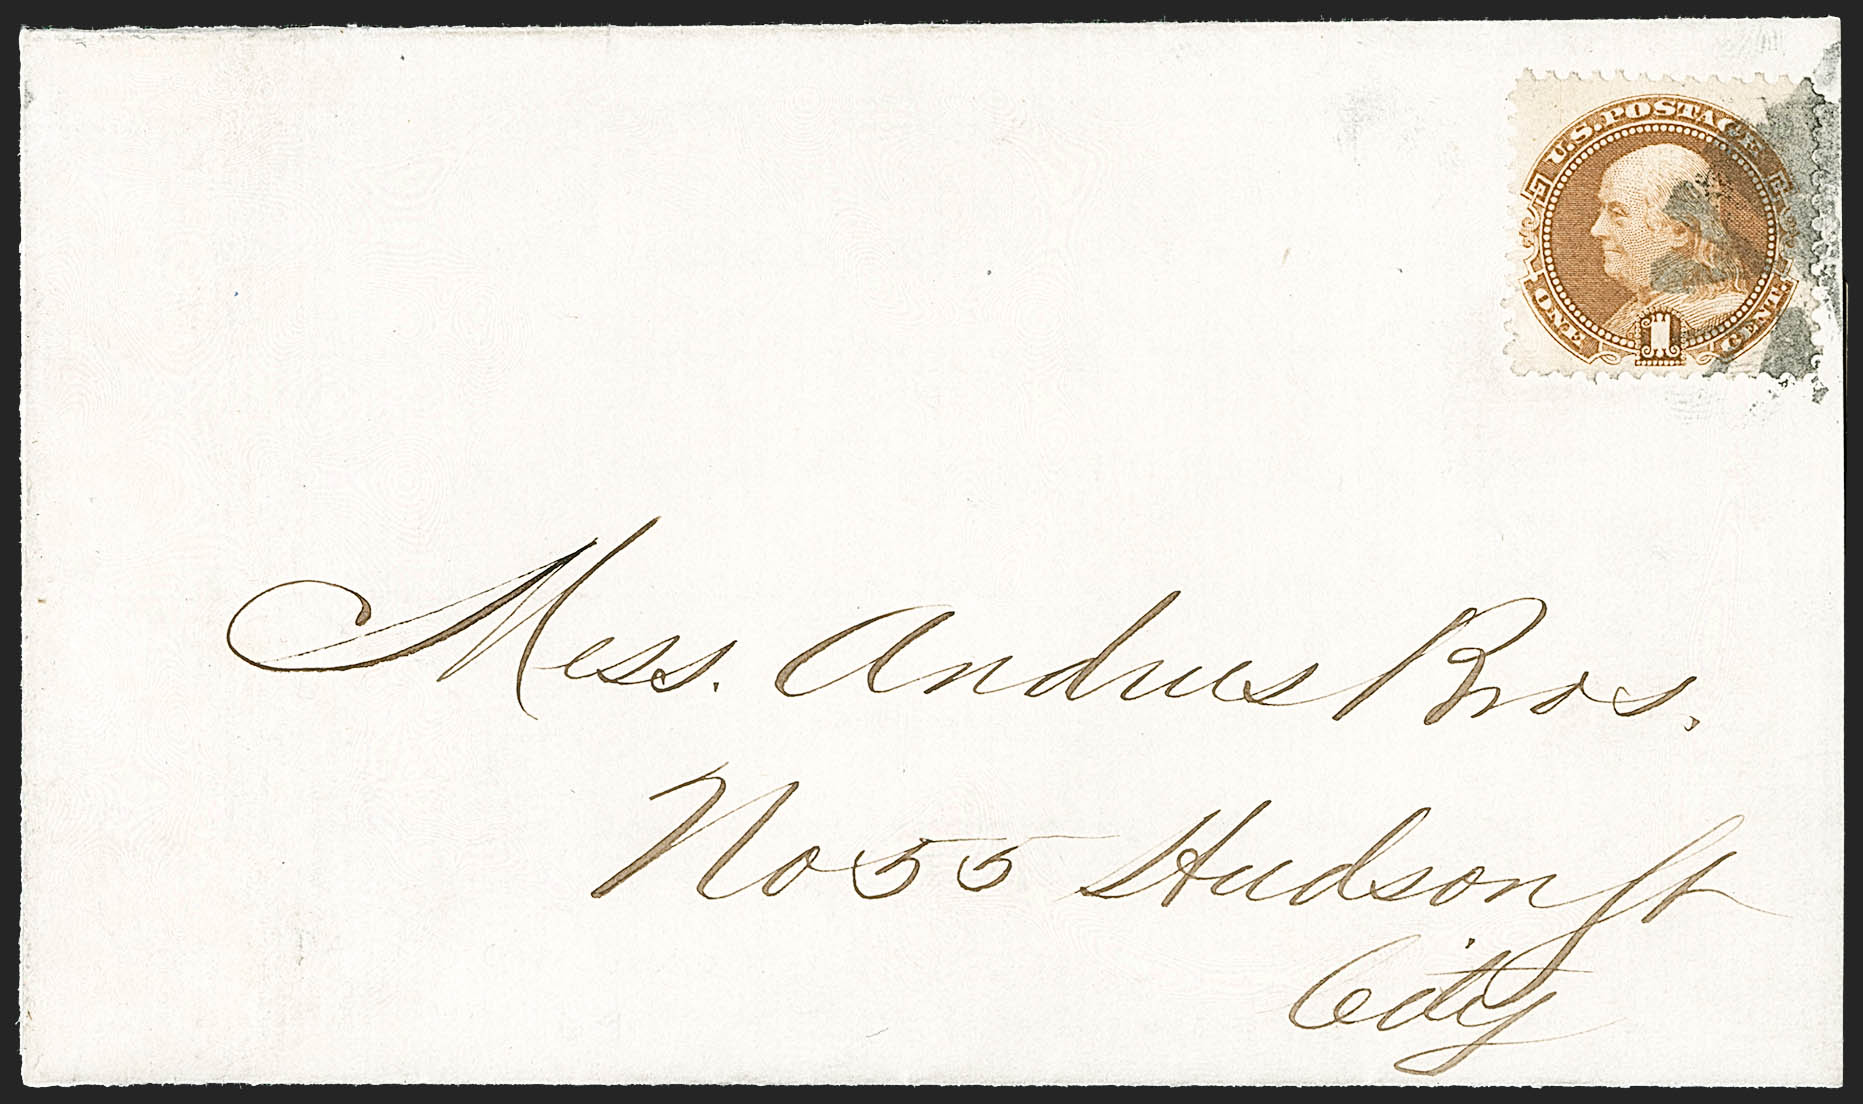 U.S. POSTAGE
ONE 1 CENT.
Mess. Andrus Bros.
No 55 Hudson St
City